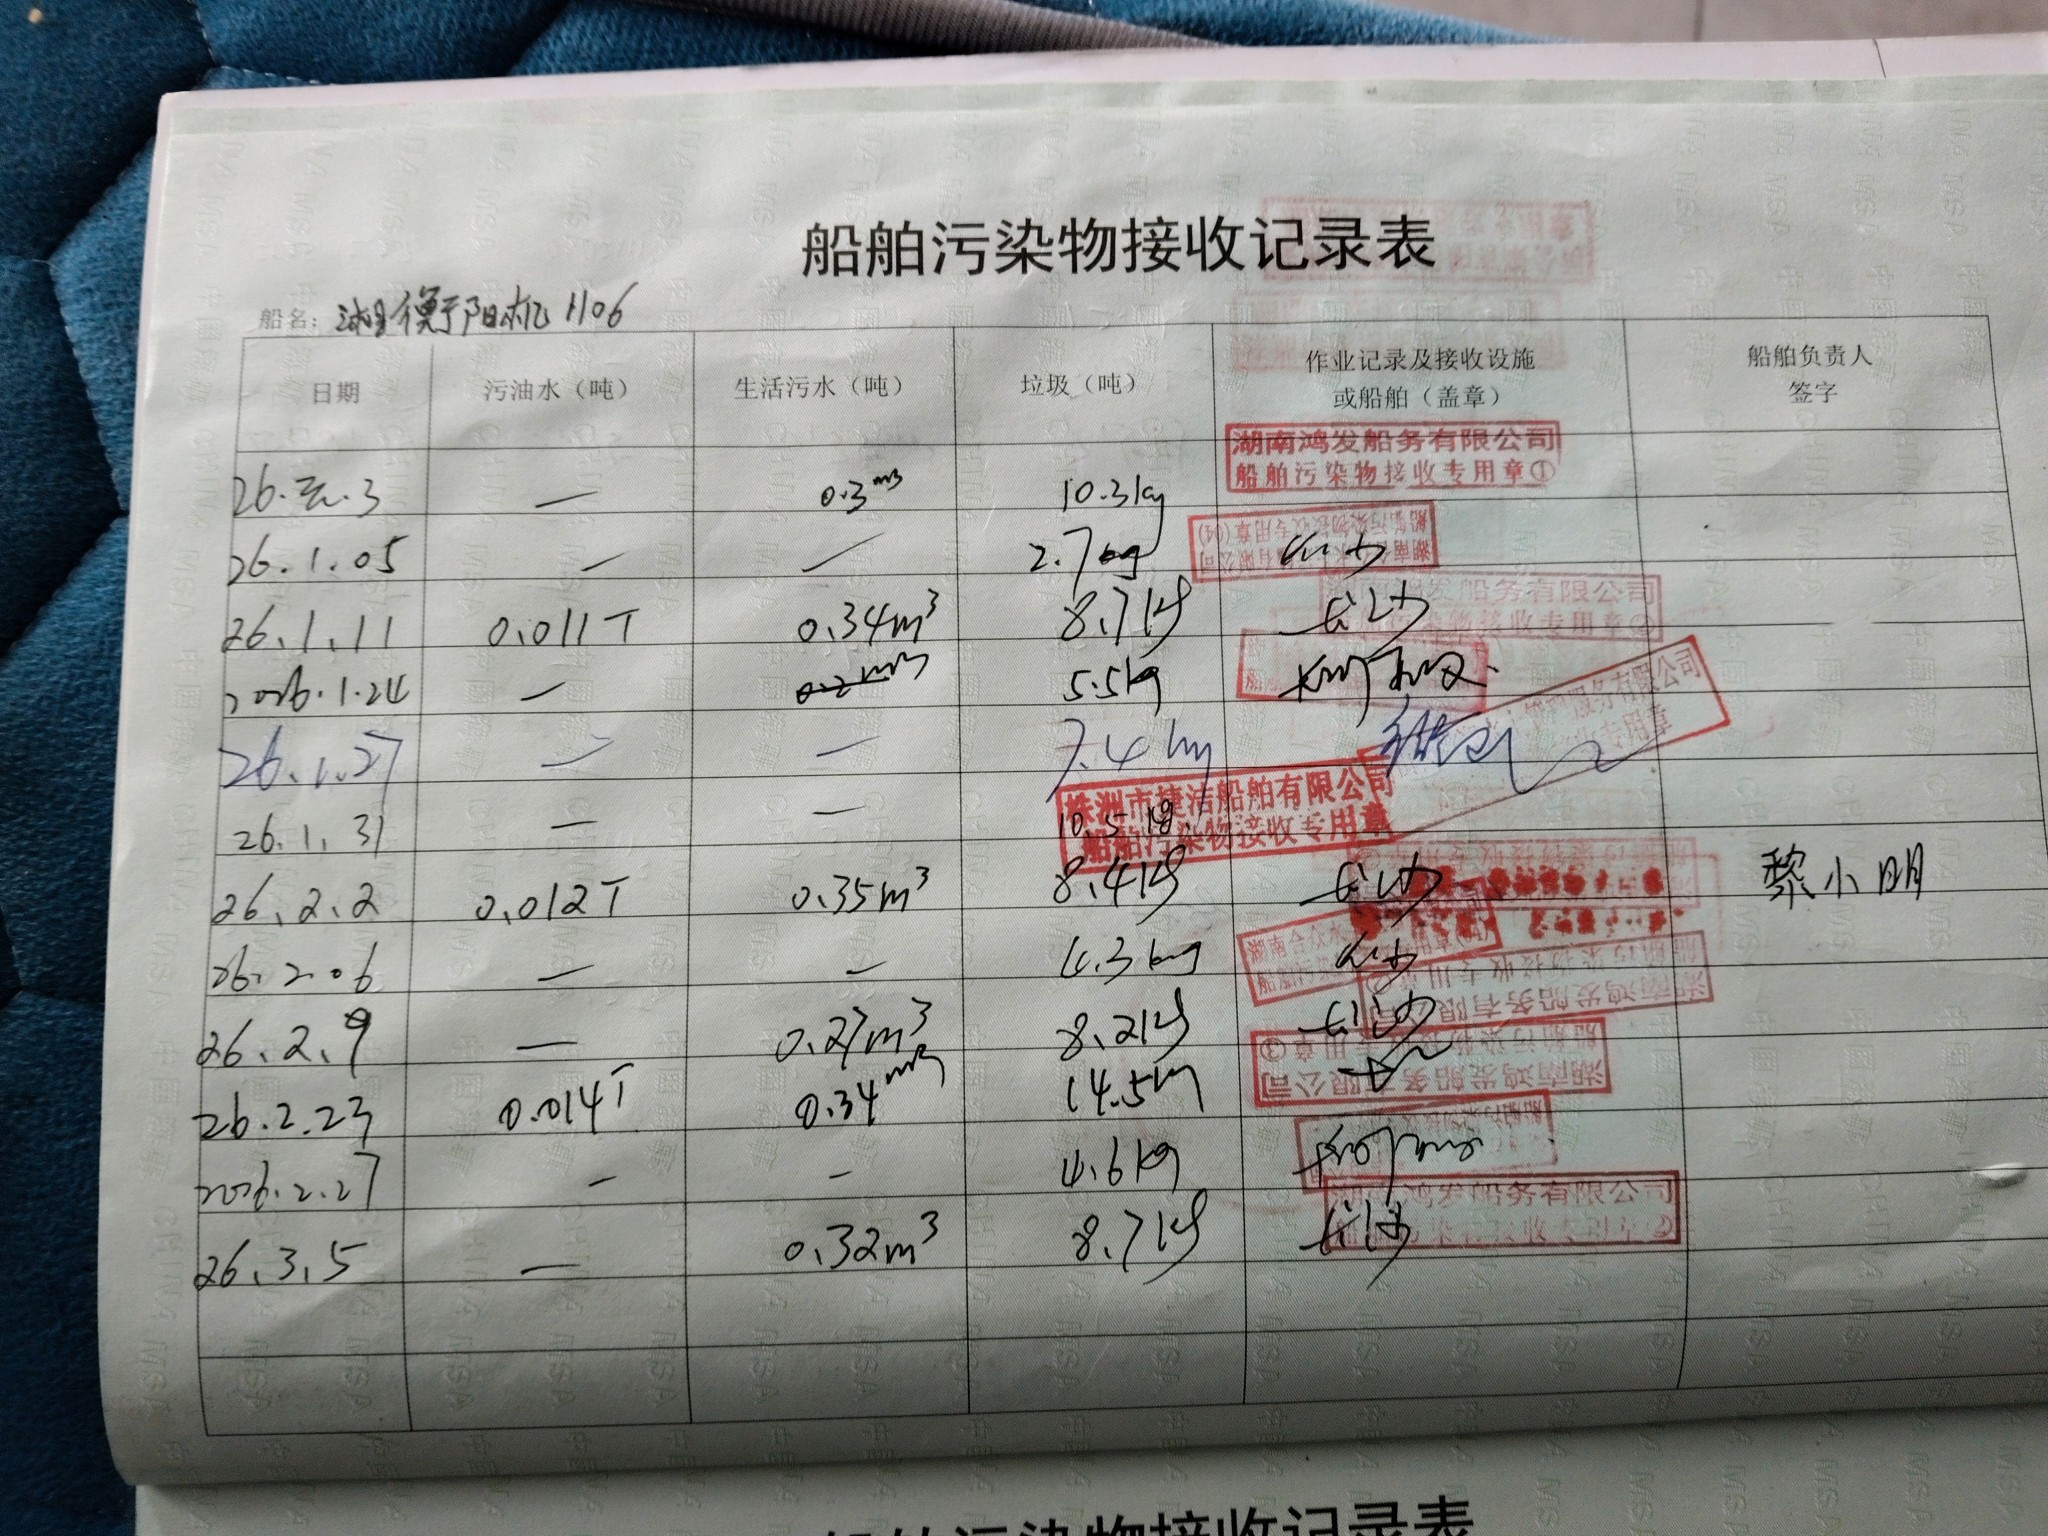 船舶污染物接收记录表
船名：湘衡阳机1106
日期 污油水（吨） 生活污水（吨） 垃圾（吨） 作业记录及接收设施或船舶（盖章） 船舶负责人签字
湖南鸿发船务有限公司
船舶污染物接收专用章①
26.元.3 — 0.3m3 10.3kg
26.1.05 — — 2.7kg 长沙
26.1.11 0.011T 0.34m³ 8.7kg 长沙
2026.1.24 — 0.2m3 5.5kg
26.1.27 — — 7.4kg
株洲市捷洁船舶有限公司
船舶污染物接收专用章
26.1.31 — — 10.5kg
26.2.2 0.012T 0.35m³ 8.4kg 长沙 黎小明
26.2.06 — — 4.3kg 长沙
26.2.9 — 0.27m³ 8.2kg 长沙
26.2.23 0.014T 0.34m3 14.5kg
2026.2.27 - - 4.6kg
26.3.5 — 0.32m³ 8.7kg 长沙
湖南鸿发船务有限公司
船舶污染物接收专用章②
船舶污染物接收记录表